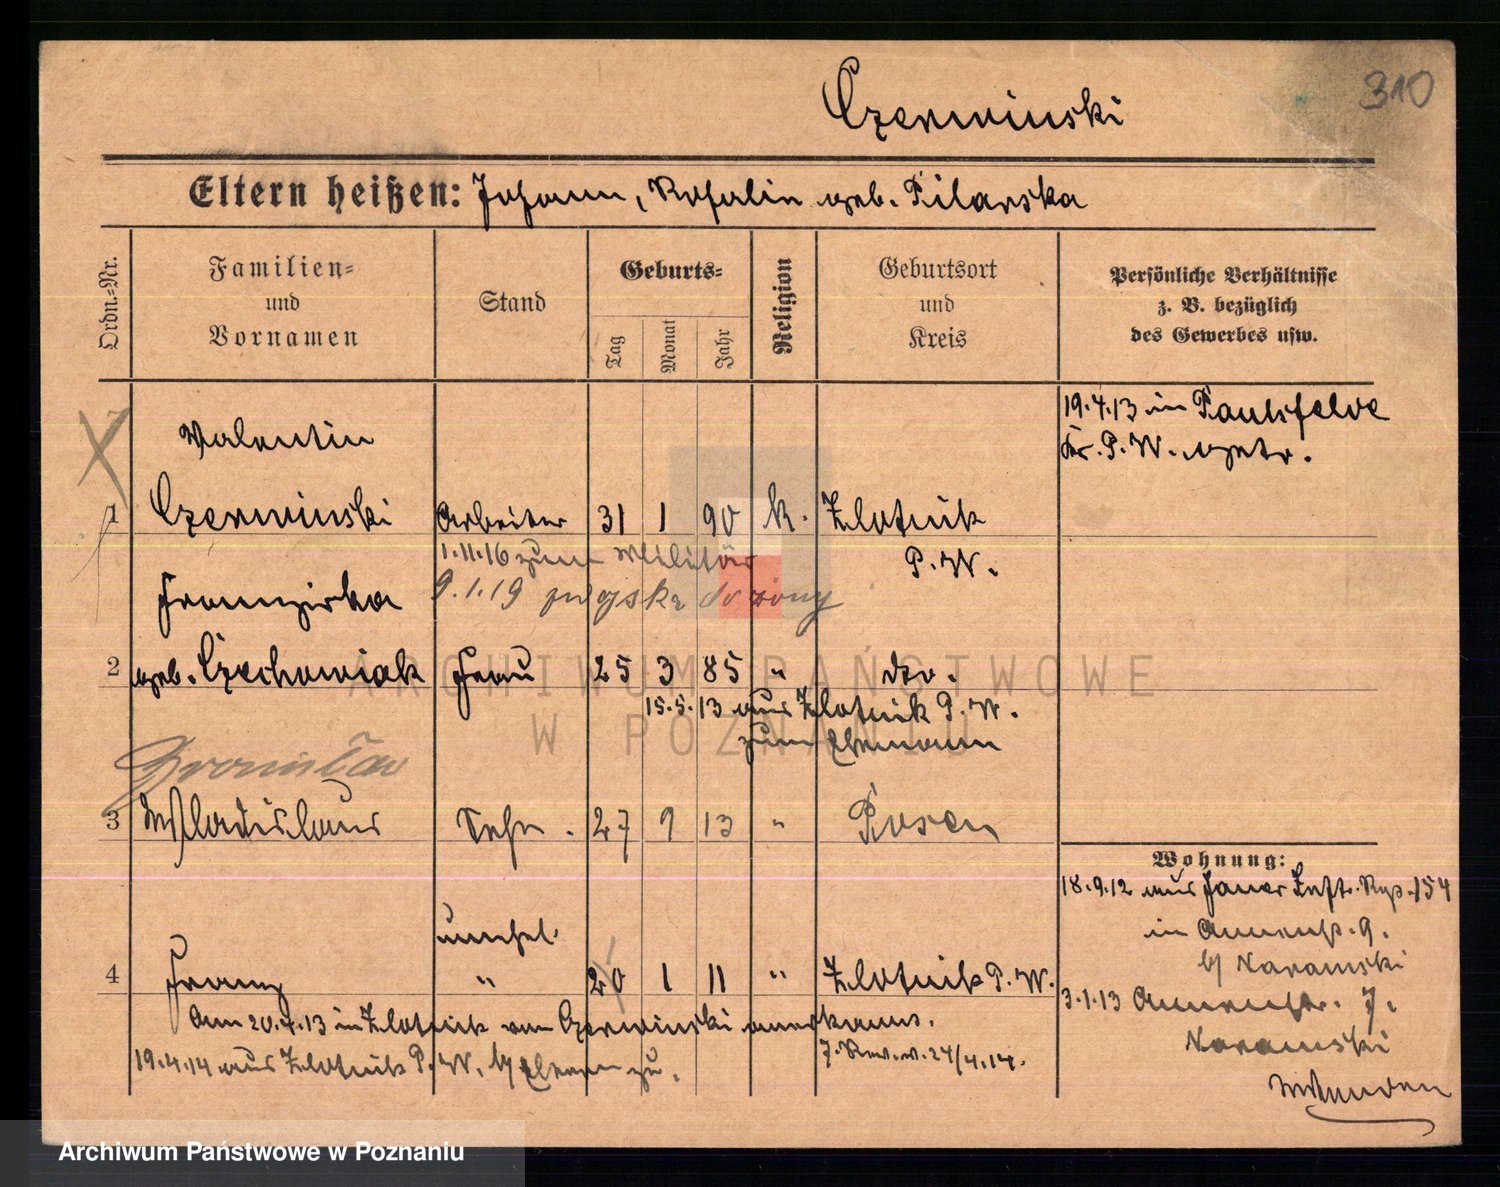 310
Czerwinski
Eltern heißen: Johann, Rosalie geb. Pilarska
Ordn.=Nr.
Familien= und Vornamen
Stand
Geburts=
Tag
Monat
Jahr
Religion
Geburtsort und Kreis
Persönliche Verhältnisse z. B. bezüglich des Gewerbes usw.
19.4.13 in Paulsfelde
Kr. P. W. getr.
Valentin
1 Czerwinski Arbeiter 31 1 90 k. Zlotnik
P. W.
1.11.16 zum Militär
9.1.19
Franziska
2 geb. Czechowiak Frau 25 3 85 " do.
15.5.13 aus Zlotnik P. W.
zum Ehemann
Bronisław
3 Wladislaus Sohn. 27 9 13 " Posen
Wohnung:
18.9.12 aus Jauer 154
in Annenstr. 9.
b/ Naramski
unehel.
4 Franz " 20 1 11 " Zlotnik P. W.
3.1.13 Annenstr. 7.
Naramski
Am 20.4.13 in Zlotnik von Czerwinski anerkannt.
19.4.14 aus Zlotnik P. W. b/ Eltern zu.
7. Rev. v. 24/4.14.
ARCHIWUM PAŃSTWOWE
W POZNANIU
Archiwum Państwowe w Poznaniu